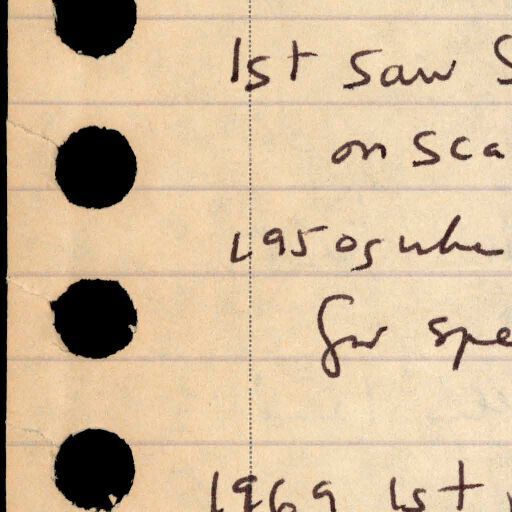 1st saw S
on sca
1950s whe
for spe
1969 1st